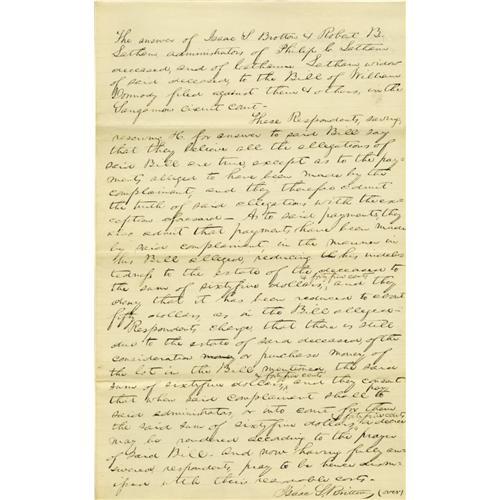 The answer of Isaac S. Britton & Robert B.
Latham administrators of Philip C Latham
deceased, and of Catharine Latham, widow
of said deceased, to the Bill of William
filed against them & others, in the
Sangamon circuit court—
These Respondents, saving,
reserving &c. for answer to said Bill say
that they believe all the allegations of
said Bill are true, except as to the pay-
ments alleged to have been made by the
complainant, and they therefore admit
the truth of said allegations with the ex-
ception aforesaid— As to said payments, they
also admit that payments have been made
by said complainant, in the manner in
his Bill alleged, reducing his indeb-
tedness to the estate of the deceased to
the sum of sixtyfive dollars, & fortyfive cents and they
deny that it has been reduced to about
fifty dollars as in the Bill alleged—
Respondents charge that there is still
due to the estate of said deceased, of the
consideration money or purchase money of
the lot in the Bill mentioned, the said
sum of sixtyfive dollars, & fortyfive cents and they consent
that when said complainant shall pay to
said administrators, or into court for them
the said sum of sixtyfive dollars, & fortyfive cents a decree
may be rendered according to the prayer
of said Bill. And now having fully ans-
wered respondents, pray to be hence dism-
issed with their reasonable costs.
Isaac S. Britton (over)